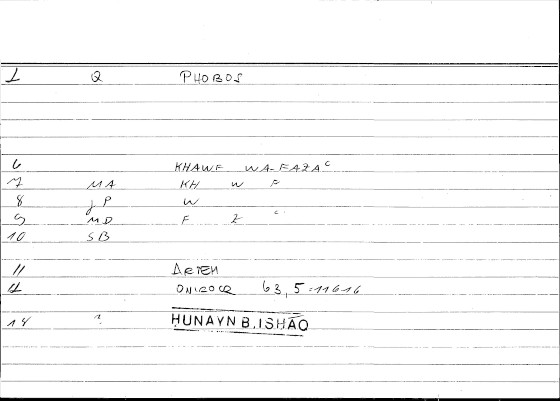 1 Q PHOBOS
6 KHAWF WA-FAZAʿ
7 MA KH W F
8 JP W
9 MD F Z ʿ
10 SB
11 ARTEM
12 ONIROCR 63, 5 = 116 16
14 ? ḤUNAYN B. ISḤĀQ